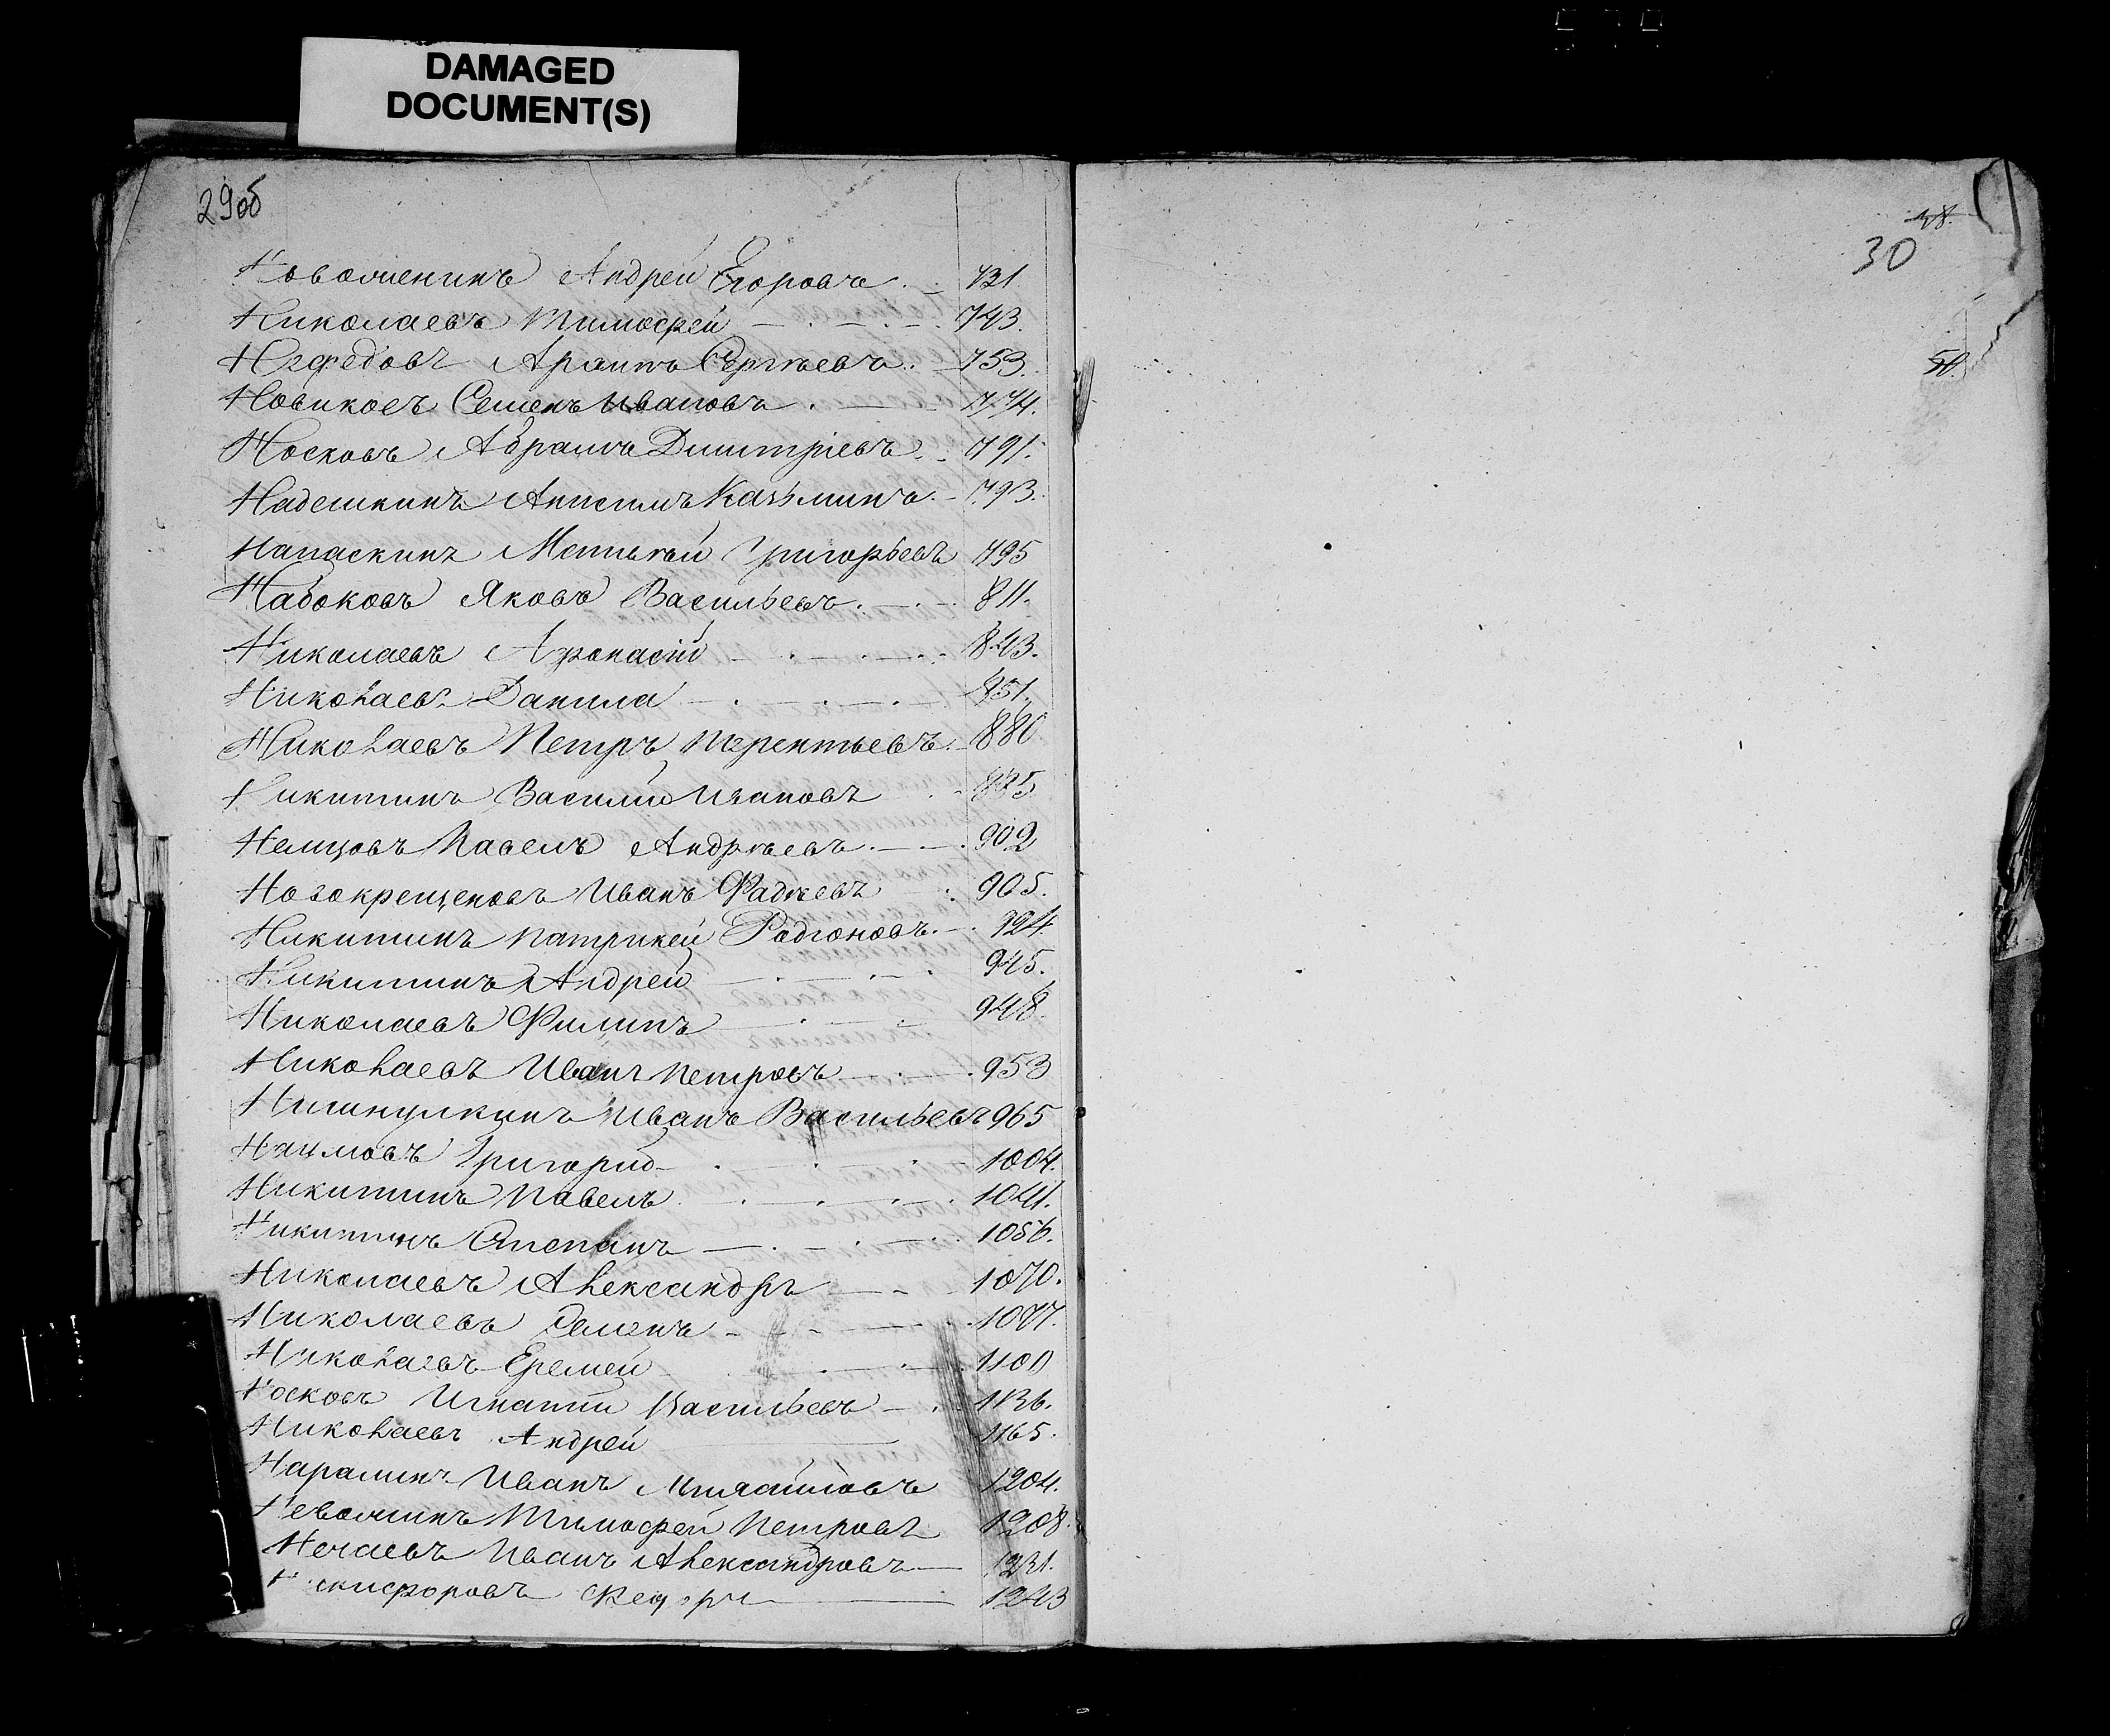 DAMAGED
DOCUMENT(S)
29об
Андрей Егоровъ 731
Николаевъ Тимофей 743.
Нефедовъ Сергѣевъ 753.
Новиковъ Семенъ Ивановъ 774.
Носковъ Абрамъ Дмитріевъ 791.
Надешкинъ Анисимъ Казьминъ 793.
Матвѣй Григорьевъ 795
Набоковъ Яковъ Васильевъ 811.
Николаевъ Афонасій 843.
Николаевъ Данила 851.
Николаевъ Петръ Терентьевъ 880
Никитинъ Василій Ивановъ
Немцовъ Павелъ Андрѣевъ 902
Новокрещеновъ Иванъ Фадѣевъ 905.
Никитинъ Патрикей Родіоновъ 924
Никитинъ Андрей 945.
Николаевъ Филипъ 948.
Николаевъ Иванъ Петровъ 953
Иванъ Васильевъ 965
Наумовъ Григорій 1004.
Никитинъ Павелъ 1041.
Никитинъ Степанъ 1056.
Николаевъ Александръ 1070.
Николаевъ Семенъ 1077.
Николаевъ Еремей 1100
Носковъ Игнатій Васильевъ 1136.
Николаевъ Андрей 1165.
Иванъ 1204.
Неволинъ Тимофей Петровъ 1208.
Нечаевъ Иванъ Александровъ 1231.
Никифоровъ Федоръ 1243
30